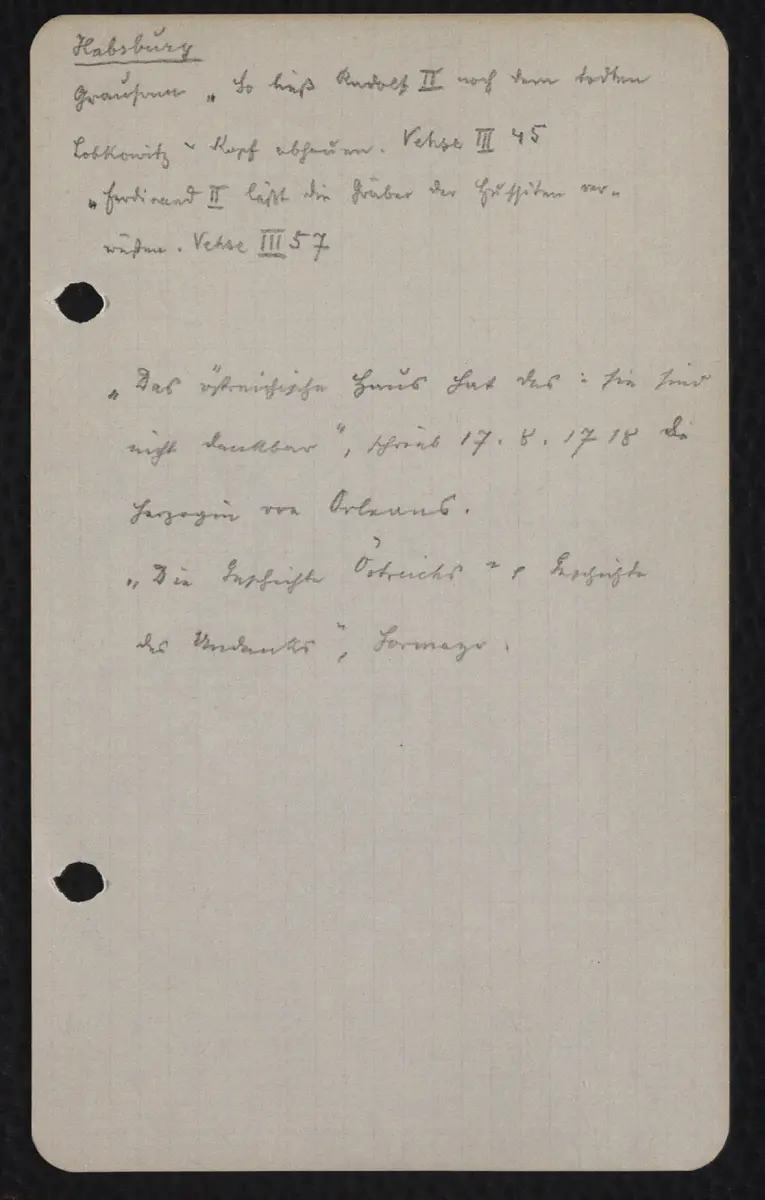 Habsburg
Grausam „ So ließ Rudolf II noch dem todten
Lobkowitz Kopf abhauen. Vehse III 45
„ Ferdinand II läßt die Gräber der Hussiten ver-
wüsten. Vehse III 57
„ Das östreichische Haus hat das: sie sind
nicht dankbar“, schrieb 17. 8. 1718 die
Herzogin von Orleans.
„ Die Geschichte Östreichs Geschichte
des Undanks“, Hormayr.